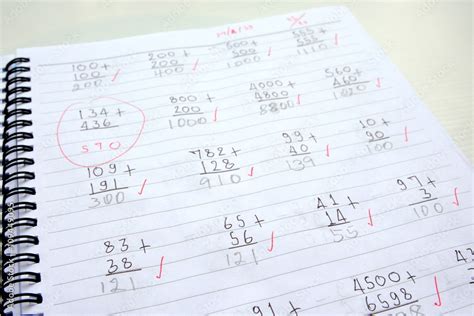 100+
100
200
200+
200
400
500
1100
555
1110
134+
436
570
800+
200
1000
4000+
4800
8800
560+
460
1020
109+
191
300
782+
128
910
99+
40
139
10+
90
100
83+
38
121
65+
56
121
41+
14
55
97+
3
100
4500+
6598